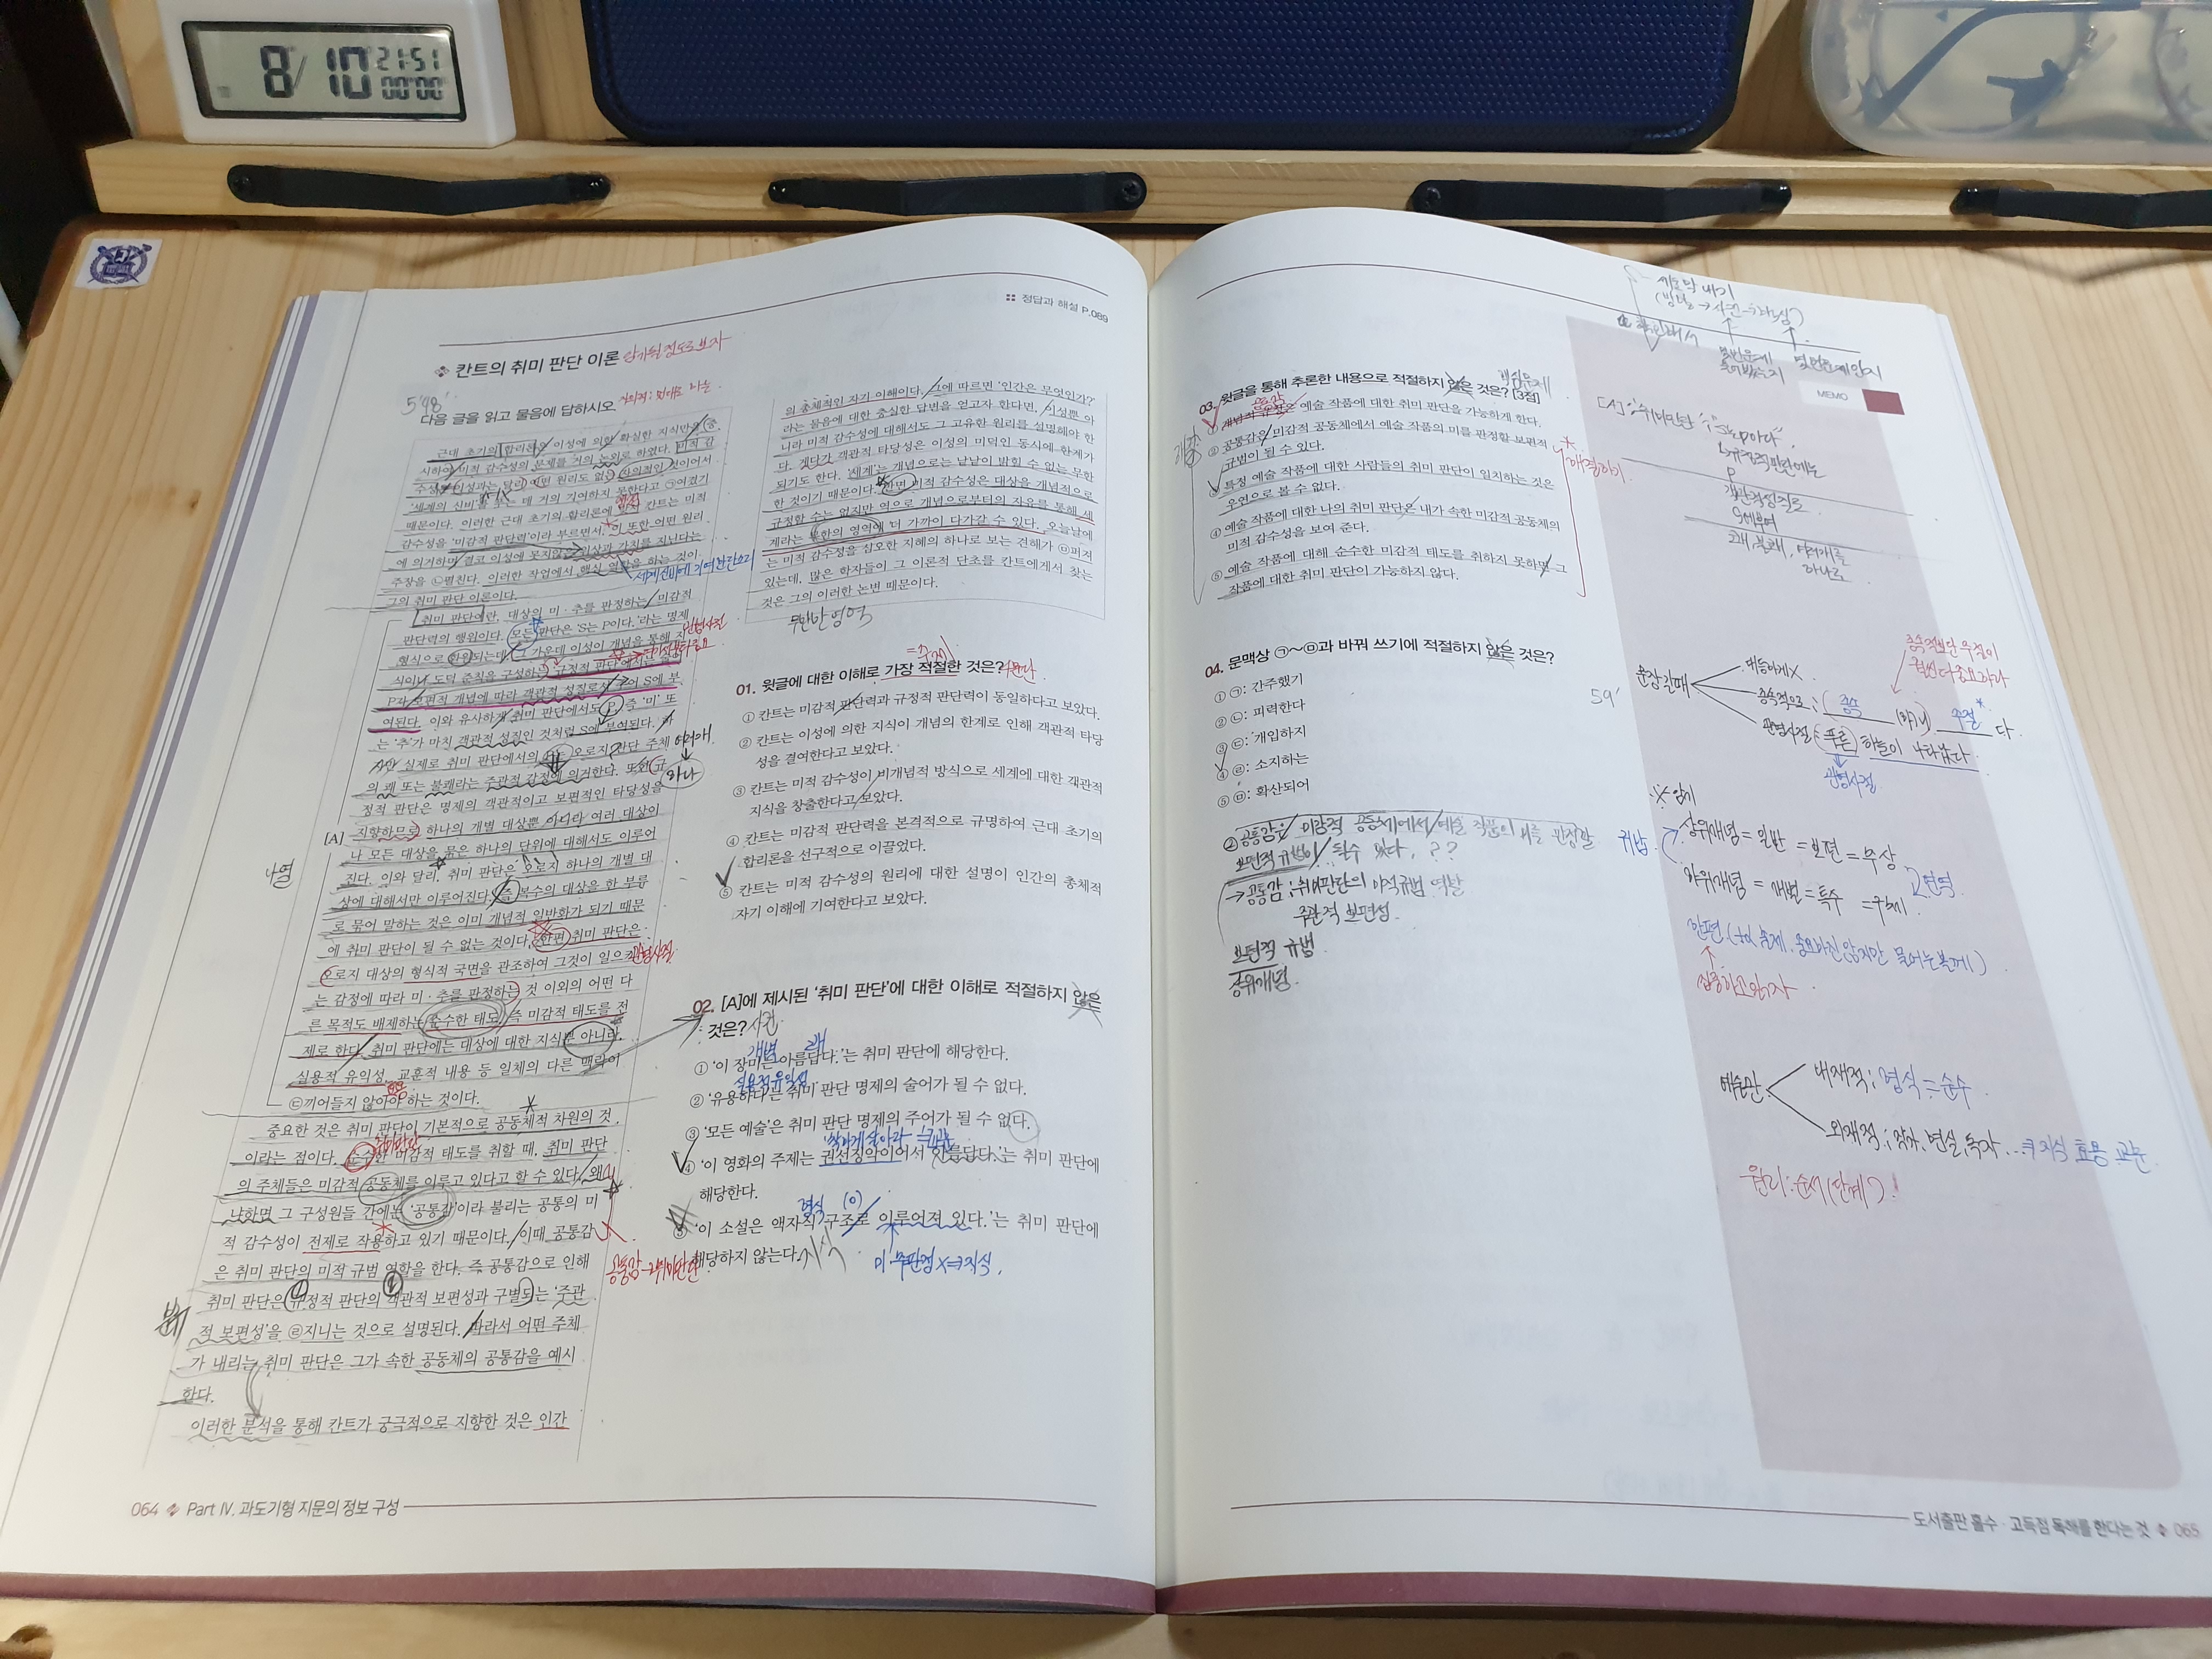 8/10 21:51
00'00"
정답과 해설 P.089
칸트의 취미 판단 이론
5'48"
다음 글을 읽고 물음에 답하시오.
근대 초기의 합리론은 이성에 의한 확실한 지식만을 중
시하여 미적 감수성의 문제를 거의 논외로 하였다. 미적 감
수성은 이성과는 달리 어떤 원리도 없는 자의적인 것이어서
'세계의 신비'를 푸는 데 거의 기여하지 못한다고 ㉠여겼기
때문이다. 이러한 근대 초기의 합리론에 맞서 칸트는 미적
감수성을 '미감적 판단력'이라 부르면서, 이 또한 어떤 원리
에 의거하며 결코 이성에 못지않은 위상과 가치를 지닌다는
주장을 ㉡펼친다. 이러한 작업에서 핵심 역할을 하는 것이
그의 취미 판단 이론이다.
취미 판단이란, 대상의 미·추를 판정하는 미감적
판단력의 행위이다. 모든 판단은 'S는 P이다.'라는 명제
형식으로 환원되는데, 그 가운데 이성이 개념을 통해 지
식이나 도덕 준칙을 구성하는 규정적 판단에서는 술어
P가 보편적 개념에 따라 객관적 성질로서 주어 S에 부
여된다. 이와 유사하게 취미 판단에서도 P, 즉 '미' 또
는 '추'가 마치 객관적 성질인 것처럼 S에 부여된다. 하
지만 실제로 취미 판단에서의 P는 오로지 판단 주체
의 쾌 또는 불쾌라는 주관적 감정에 의거한다. 또한 규
정적 판단은 명제의 객관적이고 보편적인 타당성을
[A] 지향하므로 하나의 개별 대상뿐 아니라 여러 대상이
나 모든 대상을 묶은 하나의 단위에 대해서도 이루어
진다. 이와 달리, 취미 판단은 오로지 하나의 개별 대
상에 대해서만 이루어진다. 즉 복수의 대상을 한 부류
로 묶어 말하는 것은 이미 개념적 일반화가 되기 때문
에 취미 판단이 될 수 없는 것이다. 한편 취미 판단은
오로지 대상의 형식적 국면을 관조하여 그것이 일으키
는 감정에 따라 미·추를 판정하는 것 이외의 어떤 다
른 목적도 배제하는 순수한 태도, 즉 미감적 태도를 전
제로 한다. 취미 판단에는 대상에 대한 지식뿐 아니라,
실용적 유익성, 교훈적 내용 등 일체의 다른 맥락이
㉢끼어들지 않아야 하는 것이다.
중요한 것은 취미 판단이 기본적으로 공동체적 차원의 것
이라는 점이다. 순수한 미감적 태도를 취할 때, 취미 판단
의 주체들은 미감적 공동체를 이루고 있다고 할 수 있다. 왜
냐하면 그 구성원들 간에는 '공통감'이라 불리는 공통의 미
적 감수성이 전제로 작용하고 있기 때문이다. 이때 공통감
은 취미 판단의 미적 규범 역할을 한다. 즉 공통감으로 인해
취미 판단은 규정적 판단의 객관적 보편성과 구별되는 '주관
적 보편성'을 ㉣지니는 것으로 설명된다. 따라서 어떤 주체
가 내리는 취미 판단은 그가 속한 공동체의 공통감을 예시
한다.
이러한 분석을 통해 칸트가 궁극적으로 지향한 것은 인간
의 총체적인 자기 이해이다. 그에 따르면 '인간은 무엇인가?'
라는 물음에 대한 충실한 답변을 얻고자 한다면, 이성뿐 아
니라 미적 감수성에 대해서도 그 고유한 원리를 설명해야 한
다. 게다가 객관적 타당성은 이성의 미덕인 동시에 한계가
되기도 한다. '세계'는 개념으로는 낱낱이 밝힐 수 없는 무한
한 것이기 때문이다. 반면 미적 감수성은 대상을 개념적으로
규정할 수는 없지만 역으로 개념으로부터의 자유를 통해 세
계라는 무한의 영역에 더 가까이 다가갈 수 있다. 오늘날에
는 미적 감수성을 심오한 지혜의 하나로 보는 견해가 ㉤퍼져
있는데, 많은 학자들이 그 이론적 단초를 칸트에게서 찾는
것은 그의 이러한 논변 때문이다.
무한한 영역
01. 윗글에 대한 이해로 가장 적절한 것은?
① 칸트는 미감적 판단력과 규정적 판단력이 동일하다고 보았다.
② 칸트는 이성에 의한 지식이 개념의 한계로 인해 객관적 타당
성을 결여한다고 보았다.
③ 칸트는 미적 감수성이 비개념적 방식으로 세계에 대한 객관적
지식을 창출한다고 보았다.
④ 칸트는 미감적 판단력을 본격적으로 규명하여 근대 초기의
합리론을 선구적으로 이끌었다.
⑤ 칸트는 미적 감수성의 원리에 대한 설명이 인간의 총체적
자기 이해에 기여한다고 보았다.
02. [A]에 제시된 '취미 판단'에 대한 이해로 적절하지 않은
것은?
① '이 장미는 아름답다.'는 취미 판단에 해당한다.
실용적 유익성
② '유용하다'는 취미 판단 명제의 술어가 될 수 없다.
③ '모든 예술'은 취미 판단 명제의 주어가 될 수 없다.
④ '이 영화의 주제는 권선징악이어서 아름답다.'는 취미 판단에
해당한다.
형식 (o)
⑤ '이 소설은 액자식 구조로 이루어져 있다.'는 취미 판단에
해당하지 않는다.
064 Part Ⅳ. 과도기형 지문의 정보 구성
03. 윗글을 통해 추론한 내용으로 적절하지 않은 것은? [3점]
① 개념적 규정은 예술 작품에 대한 취미 판단을 가능하게 한다.
② 공통감은 미감적 공동체에서 예술 작품의 미를 판정할 보편적
규범이 될 수 있다.
③ 특정 예술 작품에 대한 사람들의 취미 판단이 일치하는 것은
우연으로 볼 수 없다.
④ 예술 작품에 대한 나의 취미 판단은 내가 속한 미감적 공동체의
미적 감수성을 보여 준다.
⑤ 예술 작품에 대해 순수한 미감적 태도를 취하지 못하면 그
작품에 대한 취미 판단이 가능하지 않다.
04. 문맥상 ㉠~㉤과 바꿔 쓰기에 적절하지 않은 것은?
① ㉠: 간주했기
② ㉡: 피력한다
③ ㉢: 개입하지
④ ㉣: 소지하는
⑤ ㉤: 확산되어
② 공통감은 미감적 공동체에서 예술 작품의 미를 판정할
보편적 규범이 될수 있다. ??
→공통감: 취미판단의 미적규범 역할
주관적 보편성
보편적 규범
공유개념
MEMO
상위개념 = 일반 = 보편 = 추상
하위개념 = 개별 = 특수 = 구체
내재적; 형식 = 순수
외재적; 작가, 현실, 독자 … 지식 효용 교훈
원리: 순서(단계)!
도서출판 홀수·고득점 독해를 한다는 것 065